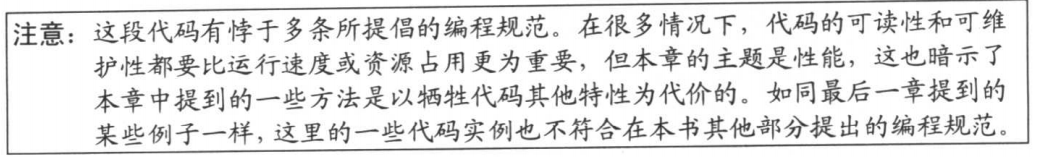 注意：这段代码有悖于多条所提倡的编程规范。在很多情况下，代码的可读性和可维
护性都要比运行速度或资源占用更为重要，但本章的主题是性能，这也暗示了
本章中提到的一些方法是以牺牲代码其他特性为代价的。如同最后一章提到的
某些例子一样，这里的一些代码实例也不符合在本书其他部分提出的编程规范。